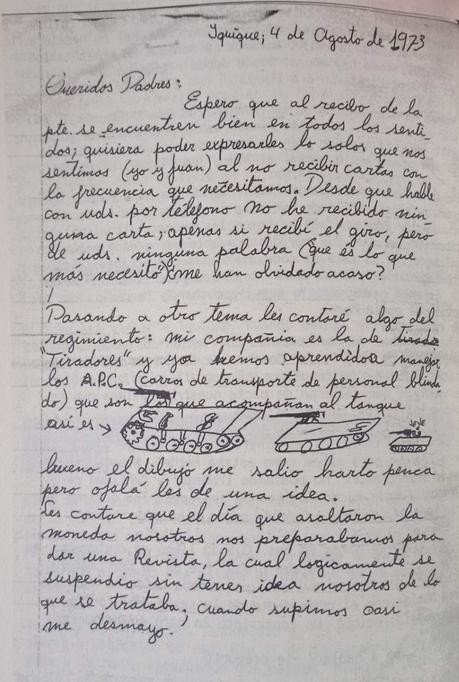 Iquique; 4 de Agosto de 1973
Queridos Padres:
Espero que al recibo de la
pte. se encuentren bien en todos los senti-
dos; quisiera poder expresarles lo solos que nos
sentimos (yo y Juan) al no recibir cartas con
la frecuencia que necesitamos. Desde que hable
con uds. por teléfono no he recibido nin-
guna carta; apenas si recibí el giro, pero
de uds. ninguna palabra (que es lo que
más necesito) ¿me han olvidado acaso?
Pasando a otro tema les contaré algo del
regimiento: mi compañia es la de
"Tiradores" y ya hemos aprendido a manejar
los A.P.C. (carros de transporte de personal blinda-
do) que son los que acompañan al tanque
así es →
bueno el dibujo me salio harto penca
pero ojalá les de una idea.
Les contare que el día que asaltaron la
moneda nosotros nos preparabamos para
dar una Revista, la cual logicamente se
suspendio sin tener idea nosotros de lo
que se trataba; cuando supimos casi
me desmayo.